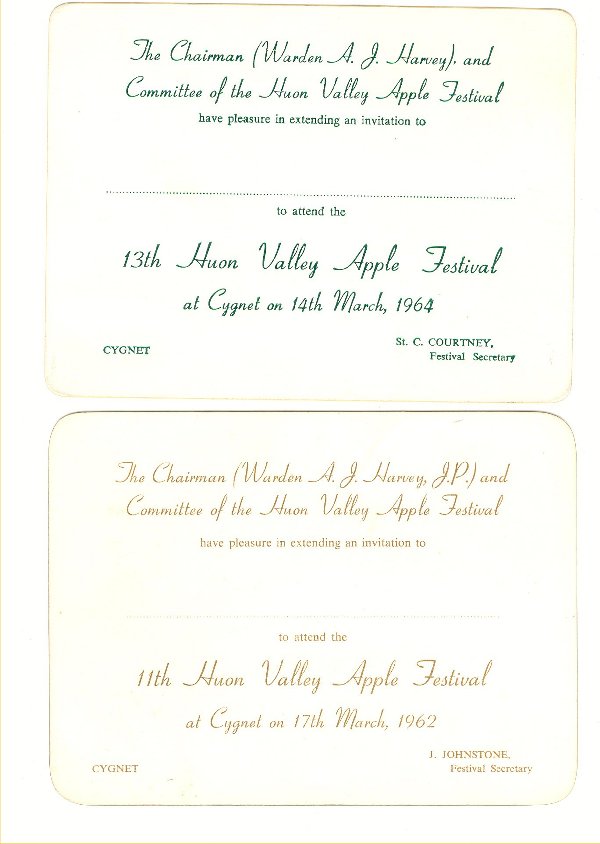 The Chairman (Warden A. J. Harvey), and
Committee of the Huon Valley Apple Festival
have pleasure in extending an invitation to
to attend the
13th Huon Valley Apple Festival
at Cygnet on 14th March, 1964
CYGNET
St. C. COURTNEY,
Festival Secretary
The Chairman (Warden A. J. Harvey, J.P.) and
Committee of the Huon Valley Apple Festival
have pleasure in extending an invitation to
to attend the
11th Huon Valley Apple Festival
at Cygnet on 17th March, 1962
J. JOHNSTONE,
CYGNET
Festival Secretary